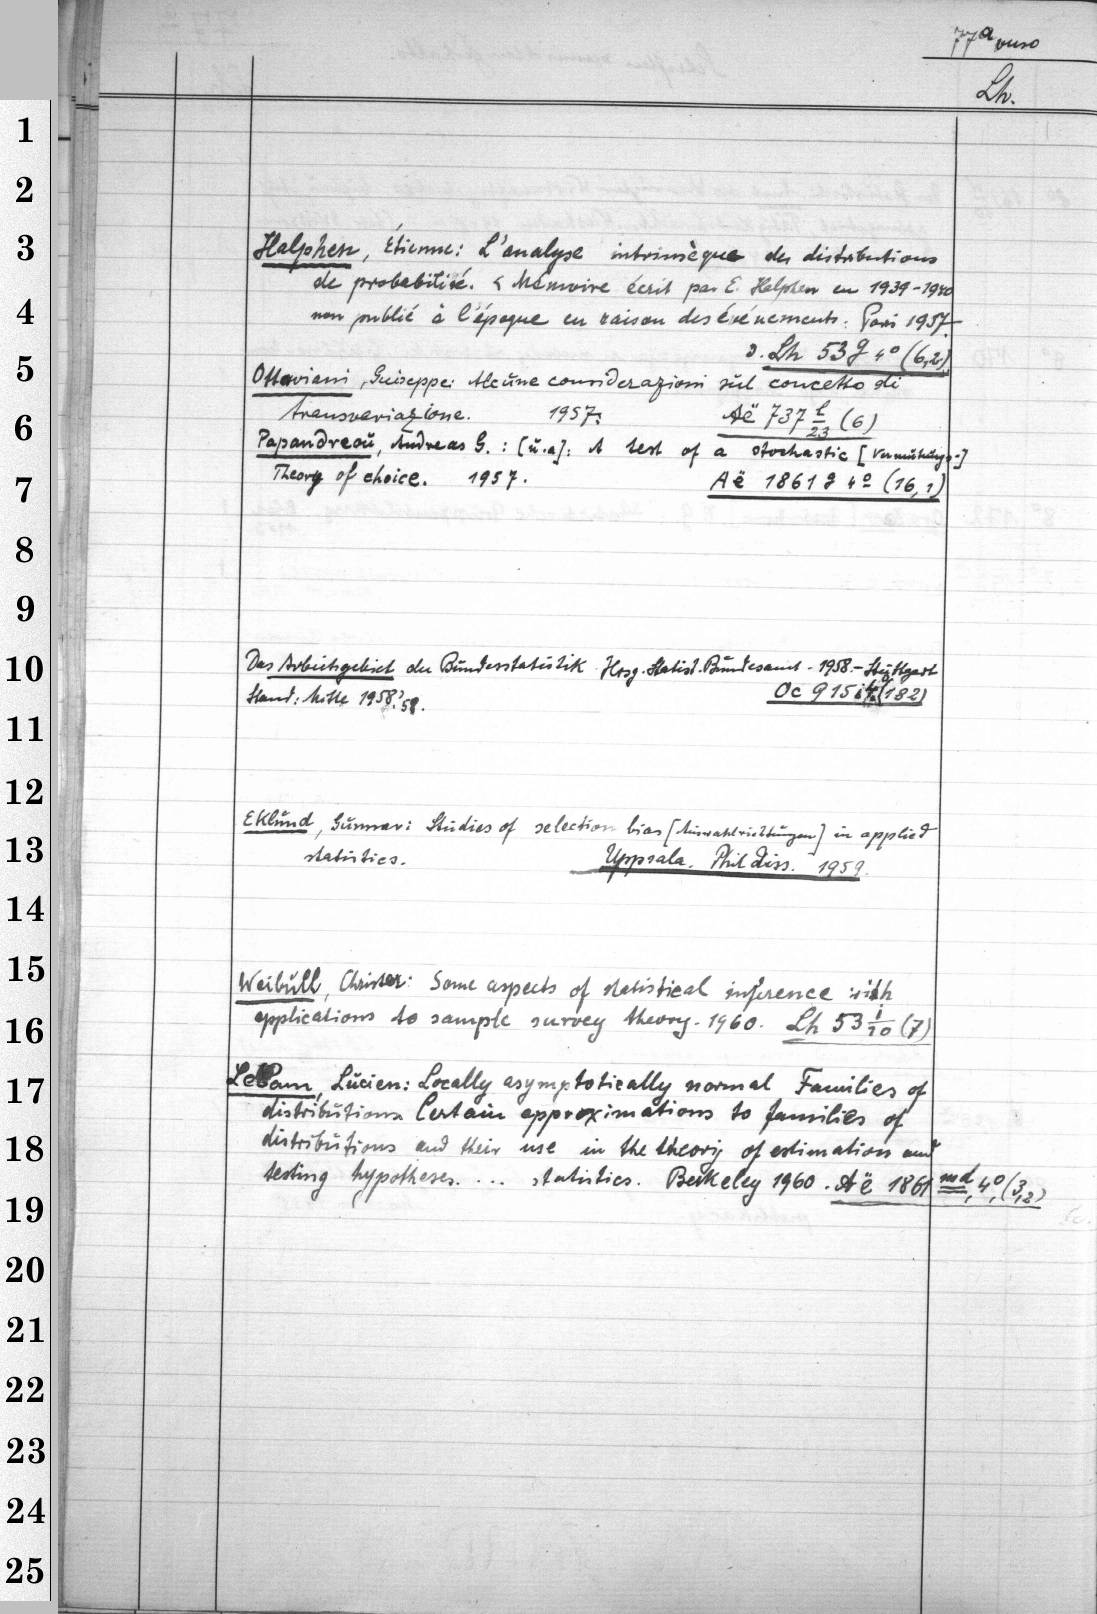 77a verso
Lh.
1
2
3
4
5
6
7
8
9
10
11
12
13
14
15
16
17
18
19
20
21
22
23
24
25
Halphen, Étienne: L'analyse intrinsèque des distributions
de probabilité. < Mémoire écrit par E. Halphen en 1939-1940
non publié à l'époque en raison des événements. Paris 1957.
Lh 53 g 4° (6,2)
Ottaviani, Guiseppe: Alcune considerazioni sul concetto di
transvariazione. 1957. Aë 737 l/23 (6)
Papandreoŭ, Andreas G.: [ŭ.a]: A test of a stochastic [Vermutungs-]
Theory of choice. 1957. Aë 1861 g 4° (16,1)
Das Arbeitsgebiet der Bŭndesstatistik Hrsg. Statist. Bŭndesamt. 1958.- Stŭttgart
Stand: Mitte 1958. '58. Oc 915 (182)
Eklŭnd, Gŭnnar: Stŭdies of selection bias [Aŭswahlrichtŭngen] in applied
statistics. Uppsala. Phil Diss. 1959.
Weibŭll, Christer: Some aspects of statistical inference with
applications to sample survey theory. 1960. Lh 53 i/10 (7)
LeCam, Lŭcien: Locally asymptotically normal Families of
distribŭtions Certain approximations to families of
distribŭtions and their use in the theory of estimation and
testing hypotheses. ... statistics. Berkeley 1960. Aë 1861 md, 4°, (3,2)